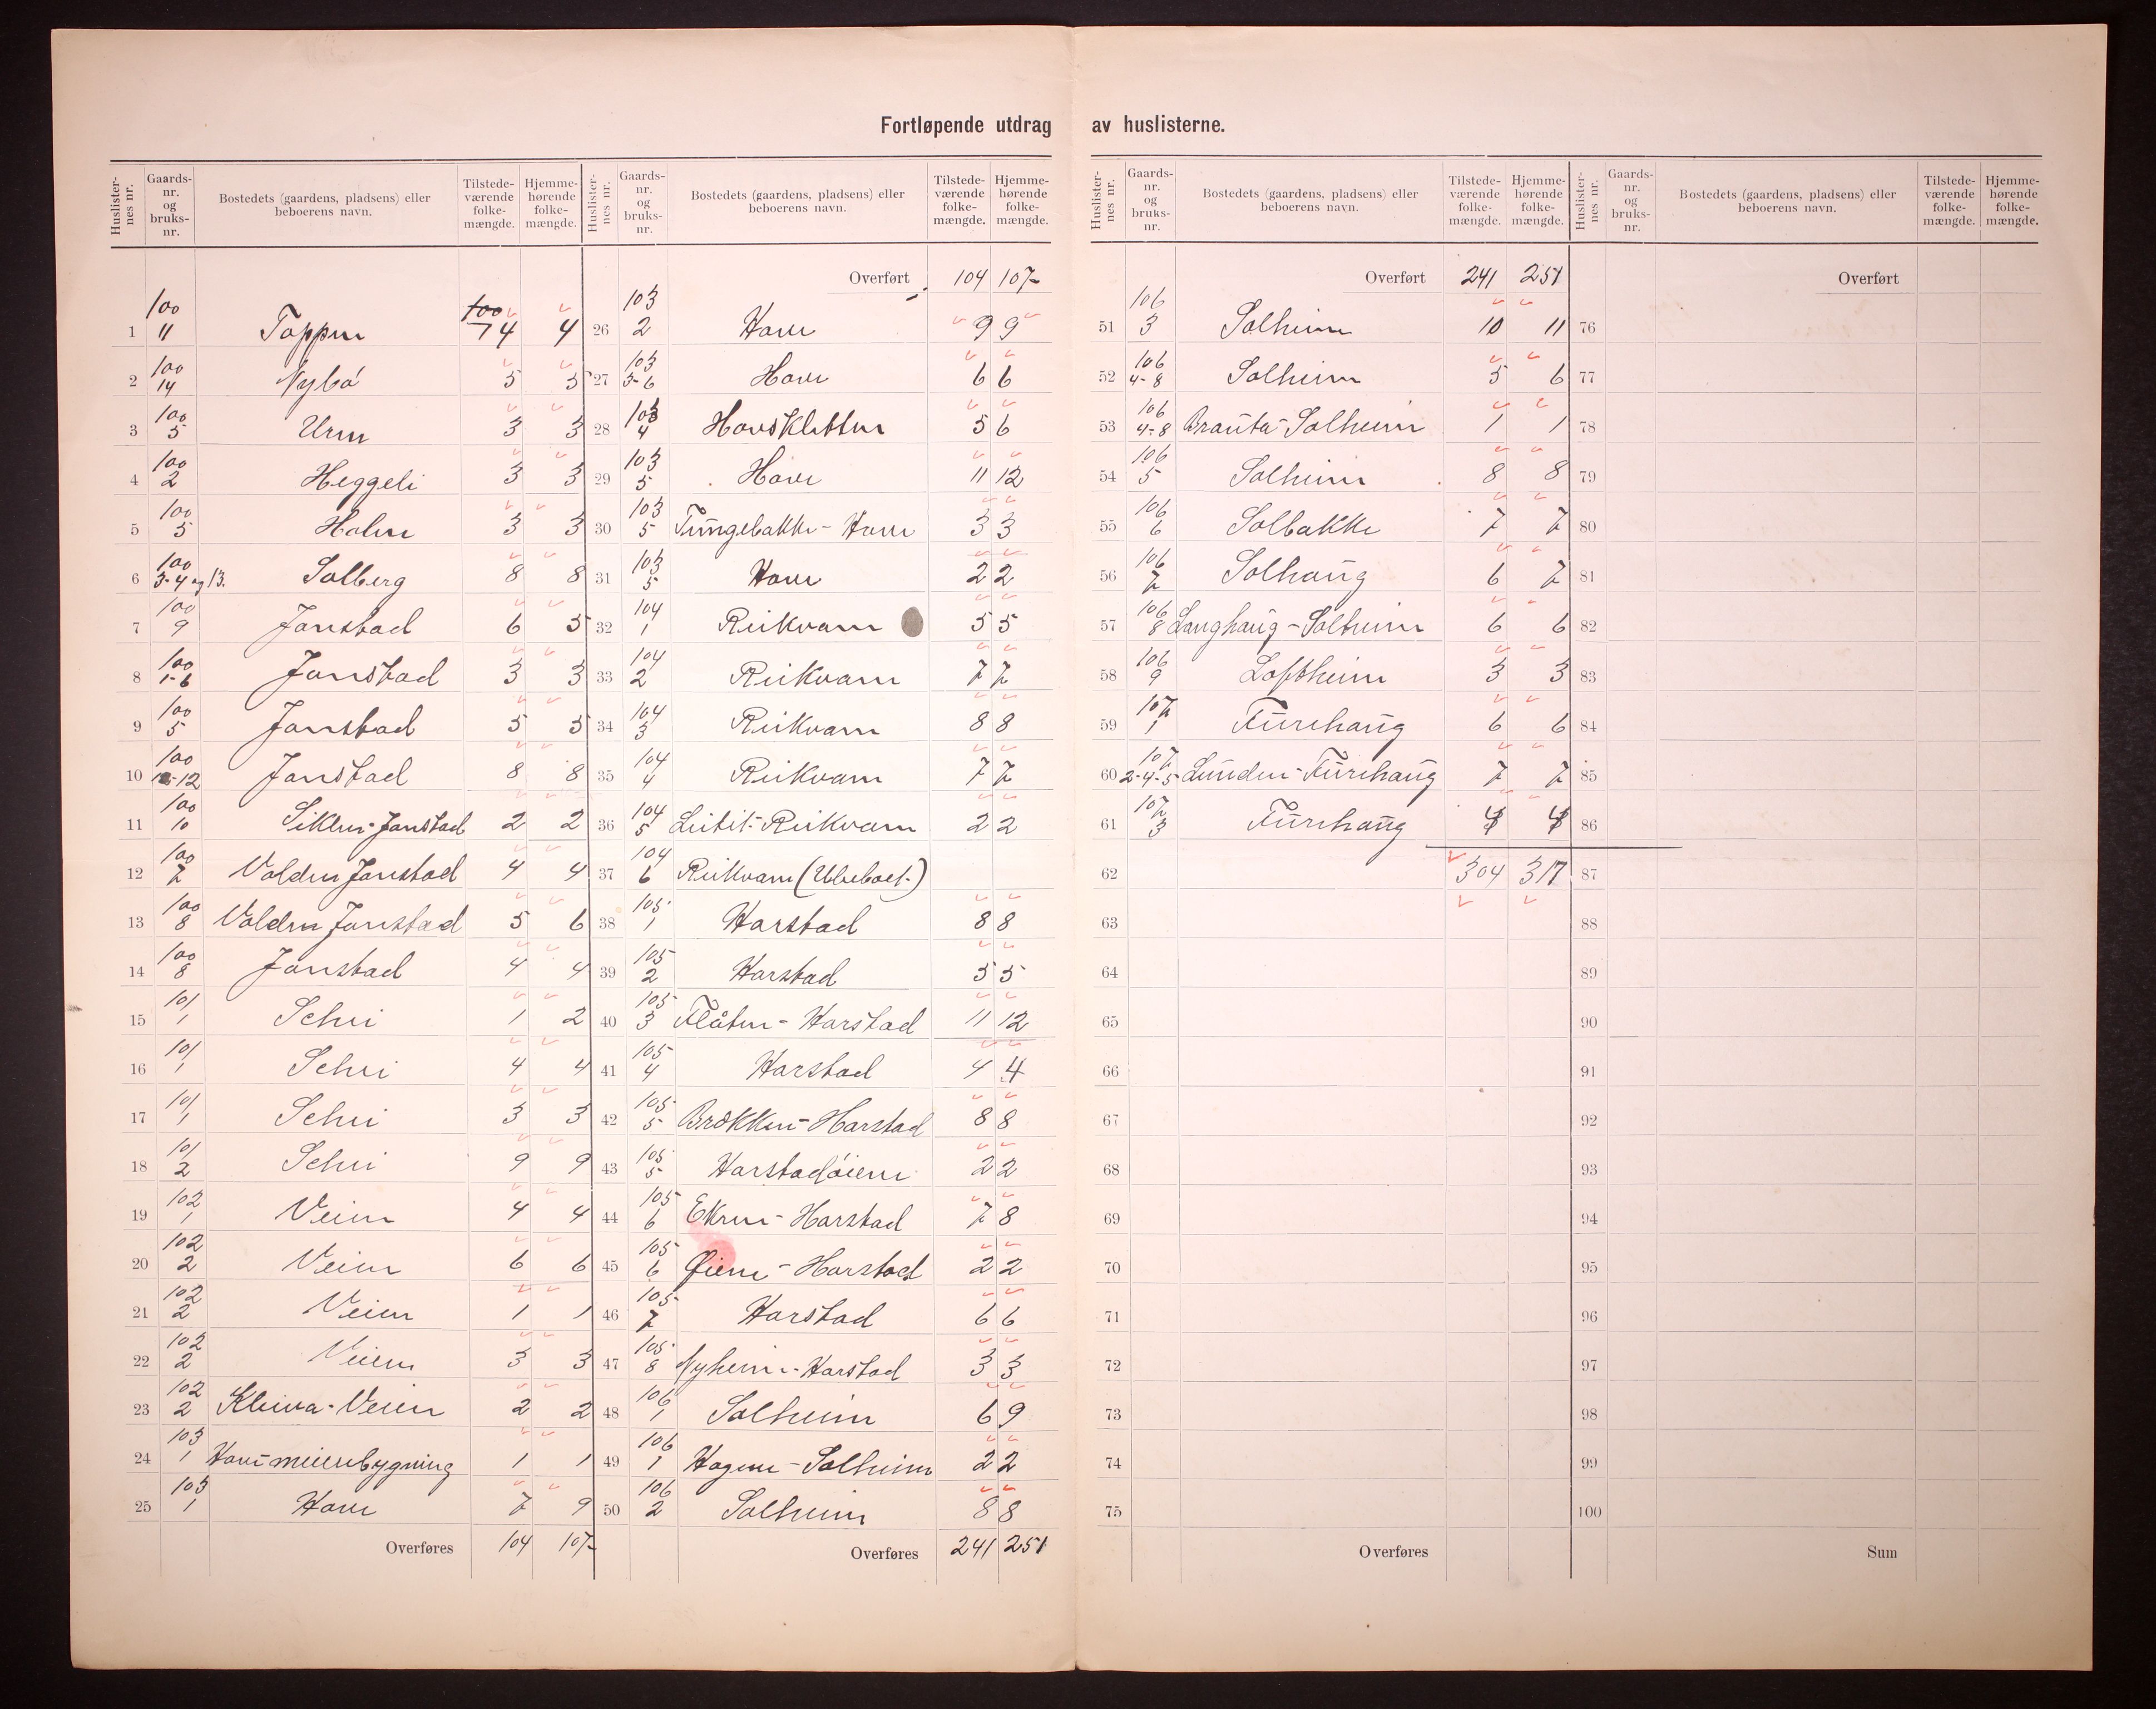 Fortløpende utdrag av huslisterne.
Huslister-nes nr. Gaards-nr. og bruks-nr. Bostedets (gaardens, pladsens) eller beboerens navn. Tilstede-værende folke-mængde. Hjemme-hørende folke-mængde.
1 100 11 Toppen 4 4
2 100 14 Nybö 5 5
3 100 5 Uren 3 3
4 100 2 Heggeli 3 3
5 100 5 Holen 3 3
6 100 3-4 og 13. Solberg 8 8
7 100 9 Jonstad 6 5
8 100 1-6 Jonstad 3 3
9 100 5 Jonstad 5 5
10 100 12 Jonstad 8 8
11 100 10 Siklen-Jonstad 2 2
12 100 7 Volden Jonstad 4 4
13 100 8 Volden Jonstad 5 6
14 100 8 Jonstad 4 4
15 101 1 Schei 1 2
16 101 1 Schei 4 4
17 101 1 Schei 3 3
18 101 2 Schei 9 9
19 102 1 Veien 4 4
20 102 2 Veien 6 6
21 102 2 Veien 1 1
22 102 2 Veien 3 3
23 102 2 Kleiva-Veien 2 2
24 103 1 Hove meieribygning 1 1
25 103 1 Hove 7 9
Overføres 104 107
Huslister-nes nr. Gaards-nr. og bruks-nr. Bostedets (gaardens, pladsens) eller beboerens navn. Tilstede-værende folke-mængde. Hjemme-hørende folke-mængde.
Overført 104 107
26 103 2 Hove 9 9
27 103 3-6 Hove 6 6
28 103 4 Hovskletten 5 6
29 103 5 Hove 11 12
30 103 5 Tingebakke-Hove 3 3
31 103 5 Hove 2 2
32 104 1 Reikvam 5 5
33 104 2 Reikvam 7 7
34 104 3 Reikvam 8 8
35 104 4 Reikvam 7 7
36 104 5 Leitet-Reikvam 2 2
37 104 6 Reikvam (Ubeboet)
38 105 1 Harstad 8 8
39 105 2 Harstad 5 5
40 105 3 Flåten-Harstad 11 12
41 105 4 Harstad 4 4
42 105 5 Brekken-Harstad 8 8
43 105 5 Harstadöiene 2 2
44 105 6 Ekren-Harstad 7 8
45 105 6 Øiene-Harstad 2 2
46 105 7 Harstad 6 6
47 105 8 Nyheim-Harstad 3 3
48 106 1 Solheim 6 9
49 106 1 Hagene-Solheim 2 2
50 106 2 Solheim 8 8
Overføres 241 251
Huslister-nes nr. Gaards-nr. og bruks-nr. Bostedets (gaardens, pladsens) eller beboerens navn. Tilstede-værende folke-mængde. Hjemme-hørende folke-mængde.
Overført 241 251
51 106 3 Solheim 10 11
52 106 4-8 Solheim 5 6
53 106 4-8 Brauta-Solheim 1 1
54 106 5 Solheim 8 8
55 106 6 Solbakke 7 7
56 106 7 Solhaug 6 7
57 106 8 Langhaug-Solheim 6 6
58 106 9 Loftheim 3 3
59 107 1 Furehaug 6 6
60 107 2-4-5 Lunden-Furehaug 7 7
61 107 3 Furehaug 4 4
62 304 317
63
64
65
66
67
68
69
70
71
72
73
74
75
Overføres
Huslister-nes nr. Gaards-nr. og bruks-nr. Bostedets (gaardens, pladsens) eller beboerens navn. Tilstede-værende folke-mængde. Hjemme-hørende folke-mængde.
Overført
76
77
78
79
80
81
82
83
84
85
86
87
88
89
90
91
92
93
94
95
96
97
98
99
100
Sum